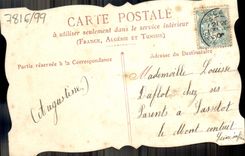 7816/99
CARTE POSTALE
à utiliser seulement dans le service intérieur
(FRANCE, ALGÉRIE ET TUNISIE)
Partie réservée à la Correspondance
Adresse du Destinataire
(Augustine)
Mademoiselle Louise
chez ses
Parents à Sassetot
le Mauconduit